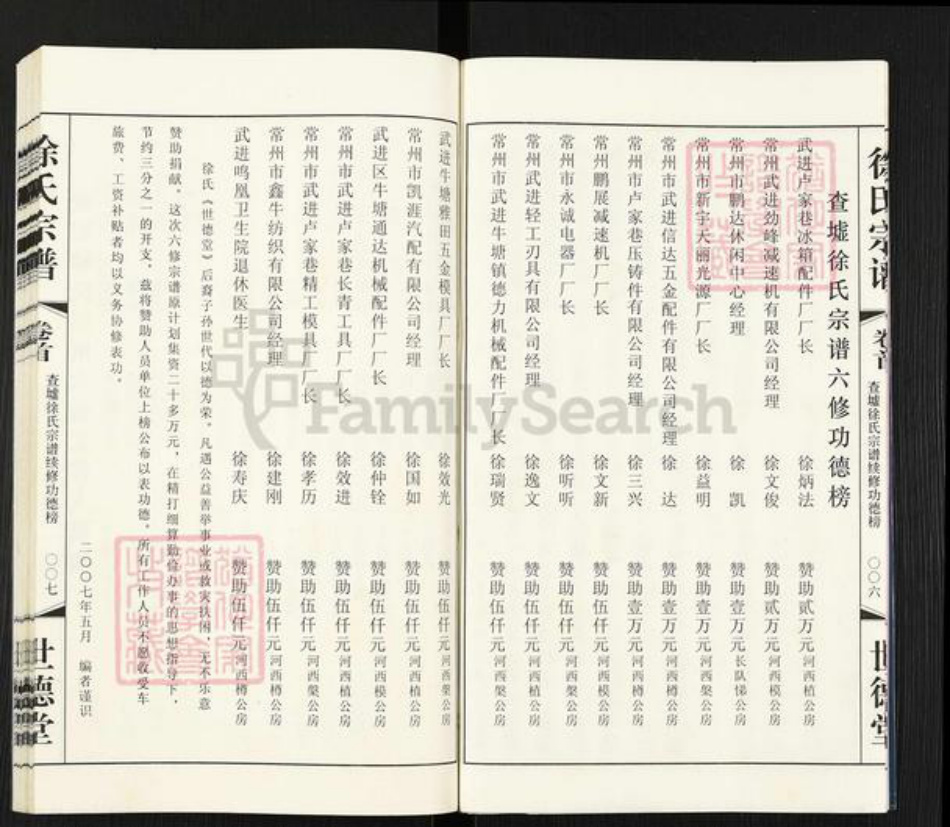 徐氏宗谱
卷首
查墟徐氏宗谱续修功德榜
〇〇六
世德堂
查墟徐氏宗谱六修功德榜
武进卢家巷冰箱配件厂厂长 徐炳法 赞助贰万元 河西植公房
常州武进劲峰减速机有限公司经理 徐文俊 赞助贰万元 河西模公房
常州市鹏达休闲中心经理 徐凯 赞助壹万元 长队悌公房
常州市新宇天丽光源厂厂长 徐益明 赞助壹万元 河西槼公房
常州市武进信达五金配件有限公司经理 徐达 赞助壹万元 河西樽公房
常州市卢家巷压铸件有限公司经理 徐三兴 赞助壹万元 河西模公房
常州鹏展减速机厂厂长 徐文新 赞助伍仟元 河西模公房
常州市永诚电器厂厂长 徐听听 赞助伍仟元 河西槼公房
常州武进轻工刃具有限公司经理 徐逸文 赞助伍仟元 河西植公房
常州市武进牛塘镇德力机械配件厂厂长 徐瑞贤 赞助伍仟元 河西槼公房
武进牛塘雅田五金模具厂厂长 徐效光 赞助伍仟元 河西槼公房
常州市凯涯汽配有限公司经理 徐国如 赞助伍仟元 河西槼公房
武进区牛塘通达机械配件厂厂长 徐仲铨 赞助伍仟元 河西模公房
常州市武进卢家巷长青工具厂厂长 徐效进 赞助伍仟元 河西植公房
常州市武进卢家巷精工模具厂厂长 徐孝历 赞助伍仟元 河西槼公房
常州市鑫牛纺织有限公司经理 徐建刚 赞助伍仟元 河西樽公房
武进鸣凰卫生院退休医生 徐寿庆 赞助伍仟元 河西樽公房
徐氏《世德堂》后裔子孙世代以德为荣。凡遇公益善举事业或救灾扶困，无不乐意
赞助捐献。这次六修宗谱原计划集资二十多万元，在精打细算勤俭办事的思想指导下，
节约三分之一的开支，兹将赞助人员单位上榜公布以表功德，所有工作人员不愿收受车
旅费、工资补贴者均以义务协修表功。
二〇〇七年五月 编者谨识
徐氏宗谱
卷首
查墟徐氏宗谱续修功德榜
〇〇七
世德堂
FamilySearch